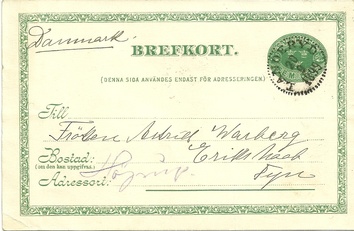 Danmark.
BREFKORT.
(DENNA SIDA ANVÄNDES ENDAST FÖR ADRESSERINGEN)
Till
Fröken Astrid Warberg
Bostad: Erikshaab
(om den kan uppgifvas)
Højrup
Adressort: Fyn